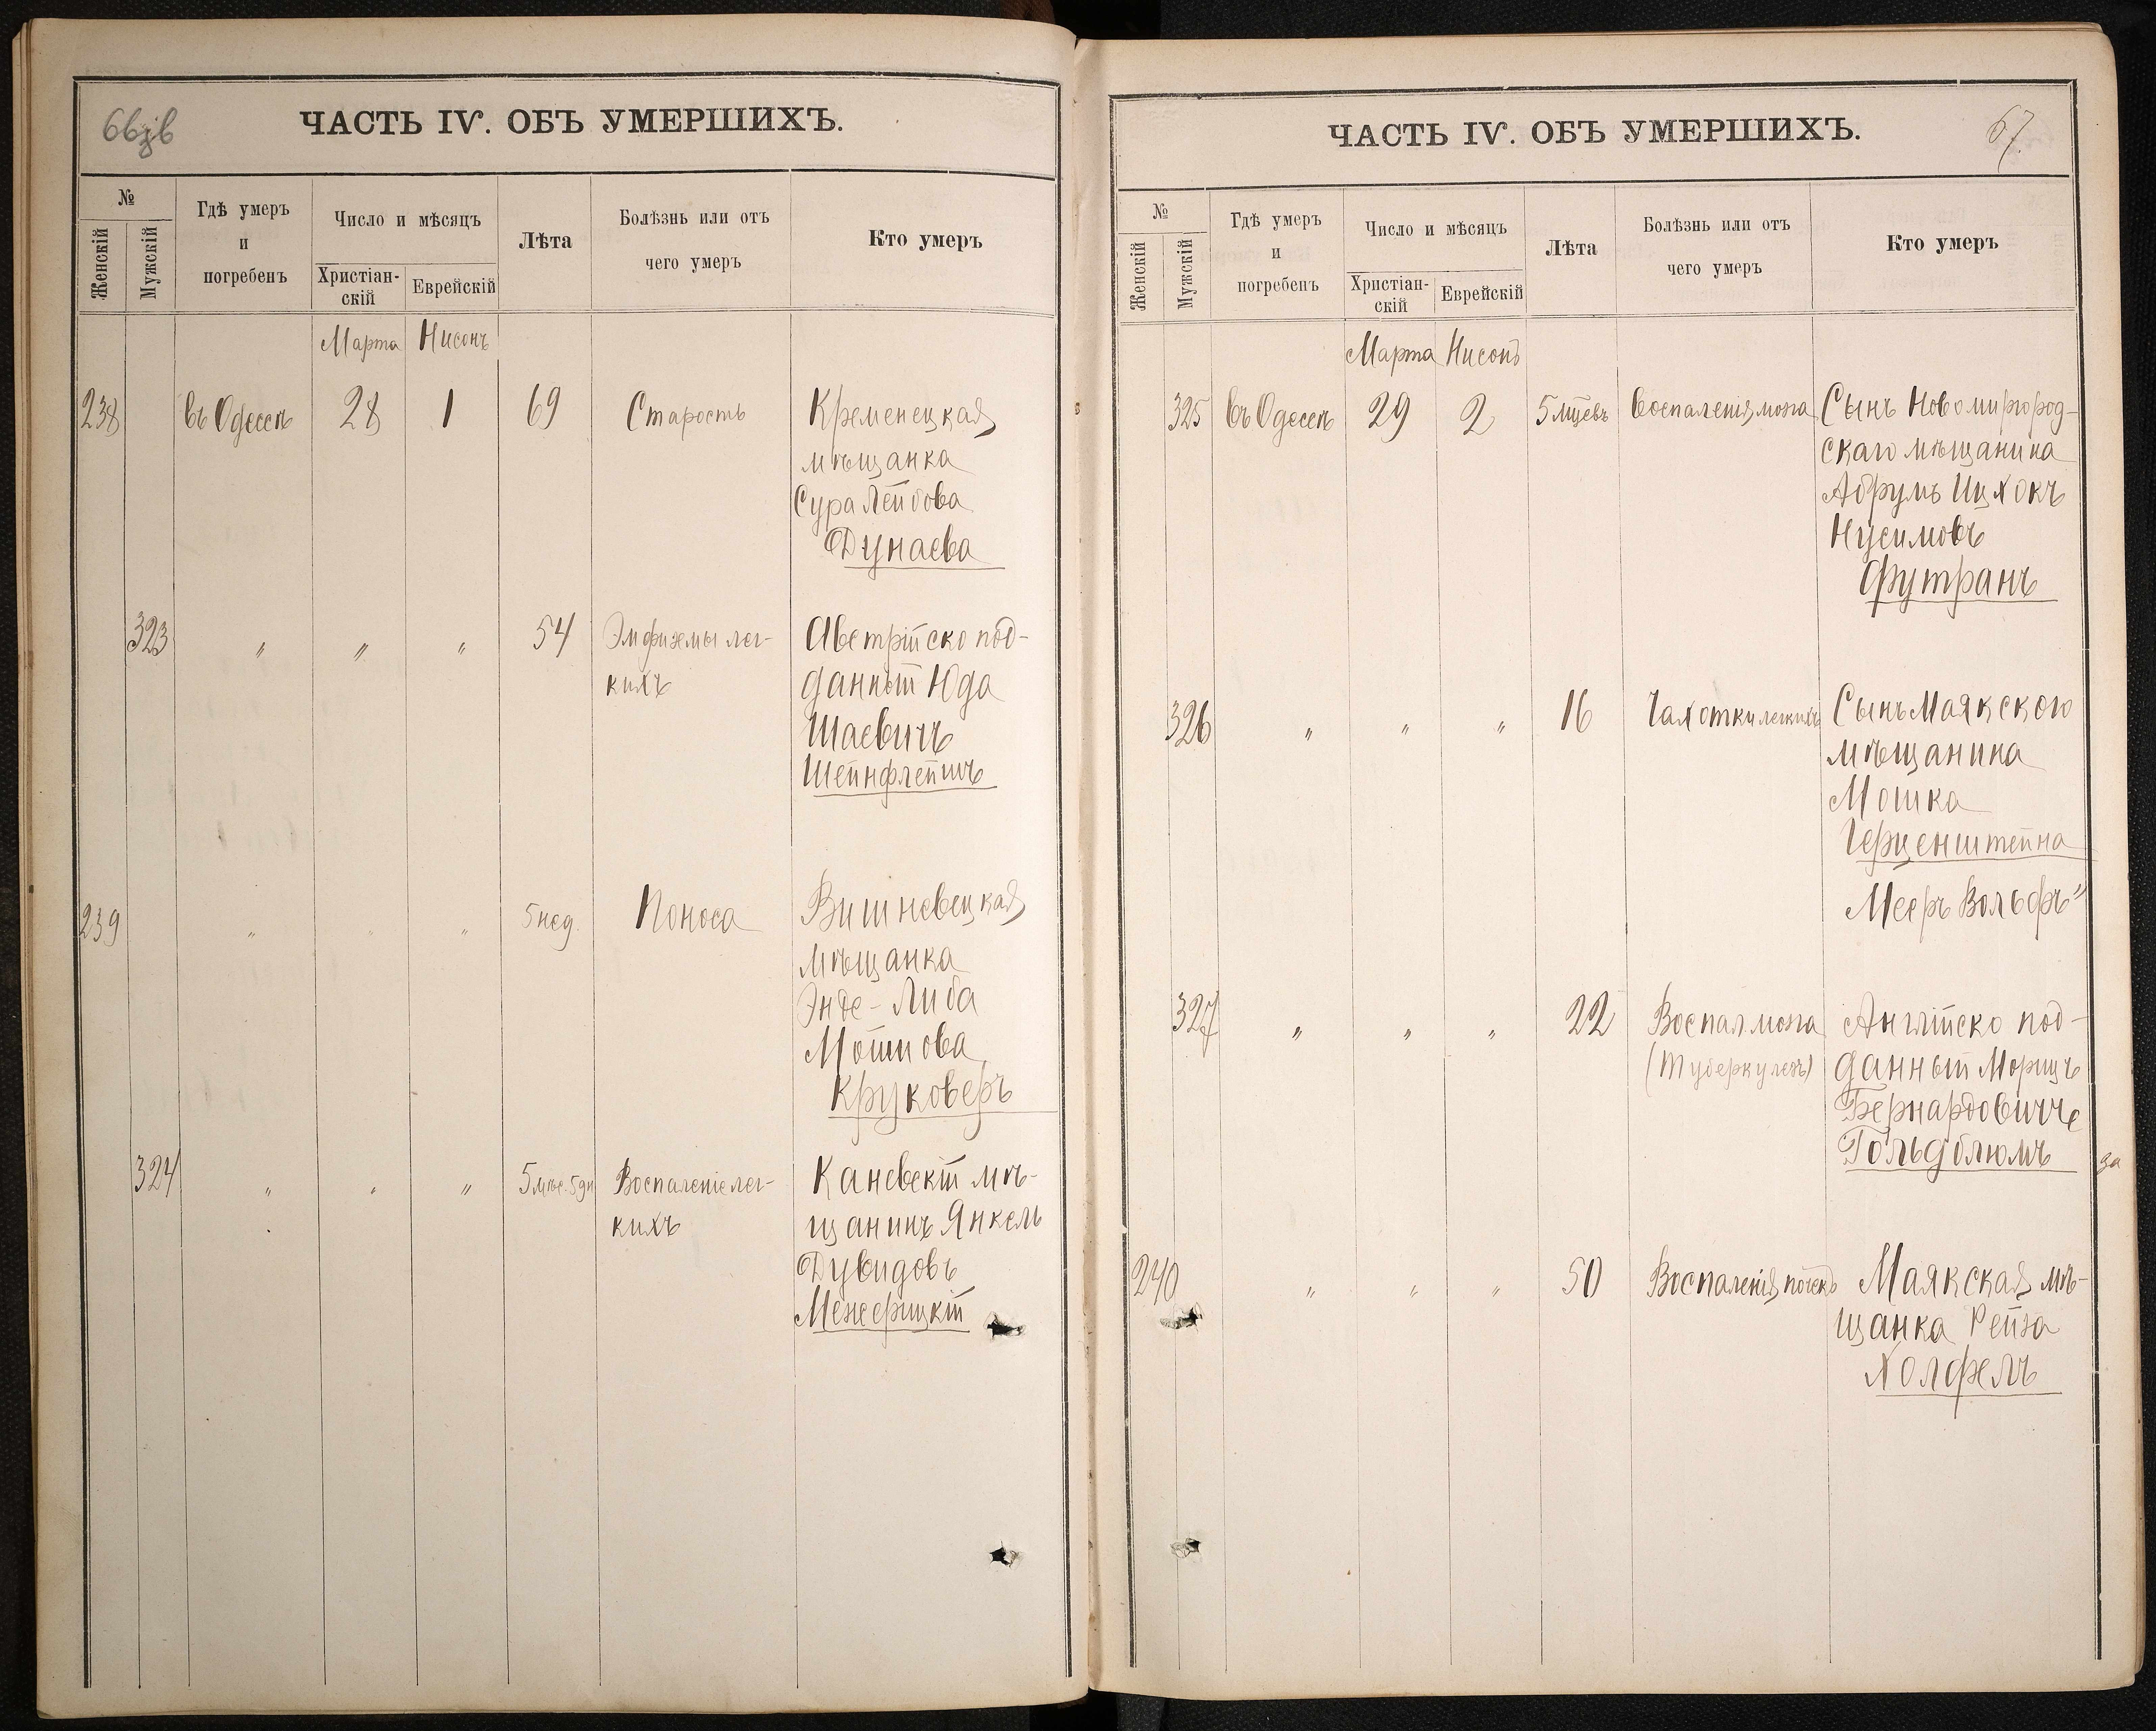 66зв
ЧАСТЬ IV. ОБЪ УМЕРШИХЪ.
№
Женскій
Мужскій
Гдѣ умеръ
и
погребенъ
Число и мѣсяцъ
Христіан-
скій
Еврейскій
Лѣта
Болѣзнь или отъ
чего умеръ
Кто умеръ
Марта Нисонъ
238 въ Одессѣ 28 1 69 Старость Кременецкая
мѣщанка
Сура Лейбова
Дунаева
323 " " " 54 Эмфиземы лег- Австрійско под-
кихъ данный Юда
Шаевичъ
Шейнфлейшъ
239 " " " 5 нед. Поноса Вишневецкая
мѣщанка
Энде-Либа
Мошкова
Круковеръ
324 " " " 5 мѣс. 5 дн Воспаленіе лег- Каневскій мѣ-
кихъ щанинъ Янкель
Дувидовъ
Межерицкій
67
ЧАСТЬ IV. ОБЪ УМЕРШИХЪ.
№
Женскій
Мужскій
Гдѣ умеръ
и
погребенъ
Число и мѣсяцъ
Христіан-
скій
Еврейскій
Лѣта
Болѣзнь или отъ
чего умеръ
Кто умеръ
Марта Нисонъ
325 въ Одессѣ 29 2 5 мцевъ Воспаленія мозга Сынъ Новомиргород-
скаго мѣщанина
Абрумъ Ицхокъ
Нусимовъ
Футранъ
326 " " " 16 Чахотки легкихъ Сынъ Маякского
мѣщанина
Мошка
Герценштейна
Мееръ Вольфъ"
327 " " " 22 Воспал мозга Англійско под-
(туберкулезъ) данный Морицъ
Бернардовичъ
Гольдблюмъ
за
240 " " " 50 Воспаленія почекъ Маякская мѣ-
щанка Рейза
Холфелъ